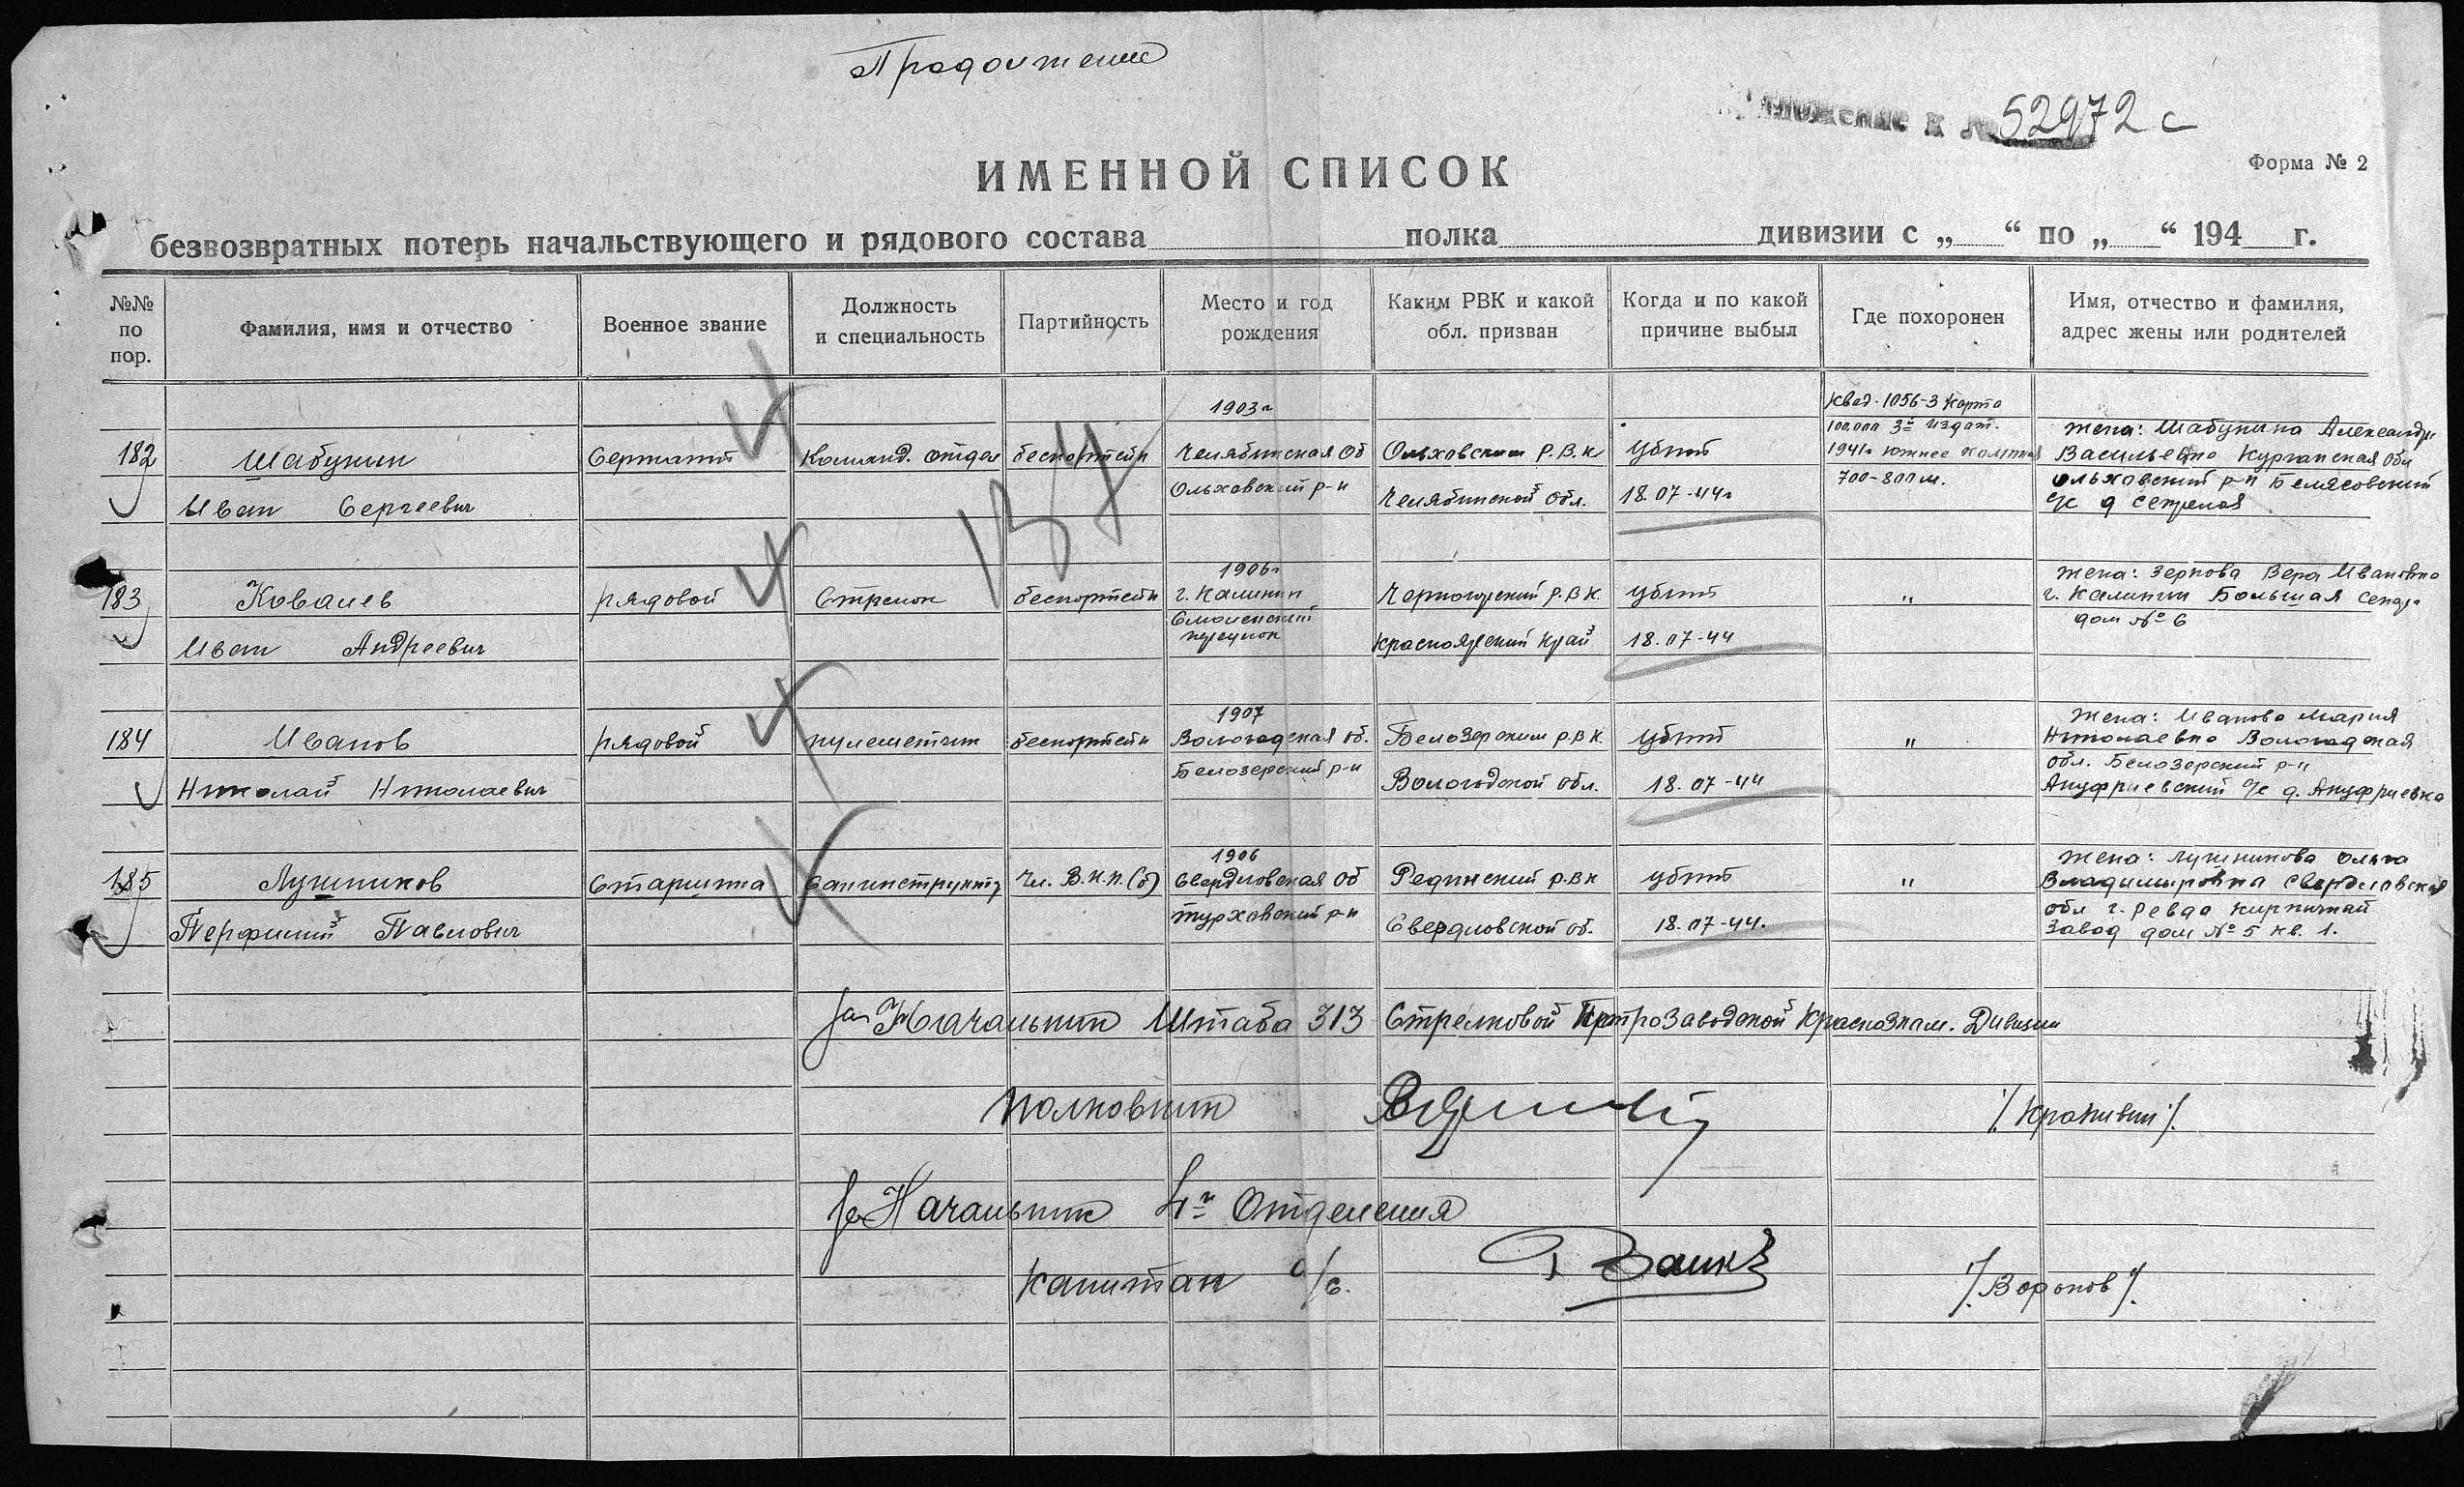 Продолжение
Приложение к № 52972 с
Форма № 2
ИМЕННОЙ СПИСОК
безвозвратных потерь начальствующего и рядового состава полка дивизии с „ “ по „ “ 194 г.
№№ по пор.
Фамилия, имя и отчество
Военное звание
Должность и специальность
Партийность
Место и год рождения
Каким РВК и какой обл. призван
Когда и по какой причине выбыл
Где похоронен
Имя, отчество и фамилия, адрес жены или родителей
182
Шабунин
Иван Сергеевич
Сержант
Команд. отдел
беспартейн
1903г
Челябинская Об
Ольховский р-н
Ольховским Р.В.К
Челябинской Обл.
Убит
18.07-44г
Квад. 1056-3 Карта
100.000 3е издат.
1941г южнее
700-800м.
Жена: Шабунина Александр
Васильевна Курганская Обл
Ольховский р-н
с/с д
183
Ковалев
Иван Андреевич
рядовой
Стрелок
беспартейн
1906г
г. Калинин
Смоленский
переулок
Черногорский Р.В.К.
Красноярский Край
убит
18.07-44
"
Жена: Зернова Вера Ивановна
г. Калинин Большая
дом № 6
184
Иванов
Николай Николаевич
рядовой
пулеметчик
беспартейн
1907
Вологодская об.
Белозерский р-н
Белозерским р.в.к.
Вологодской Обл.
убит
18.07-44
"
Жена: Иванова Мария
Николаевна Вологодская
обл. Белозерский р-н
Ануфриевский с/с д. Ануфриевка
185
Лушников
Перфилий Павлович
Старшина
Санинструктр
Чл. В.К.П.(б)
1906
Свердловская Об
р-н
р.в.к
Свердловской об.
убит
18.07-44.
"
Жена: Лушникова Ольга
Владимировна Свердловская
обл г. Ревда кирпичный
завод дом № 5 кв. 1.
137
за Начальник Штаба 313 Стрелковой Петрозаводской Краснознам. Дивизии
Полковник /Крапивин/.
за Начальник 4го Отделения
Капитан а/с. /Воронов/.